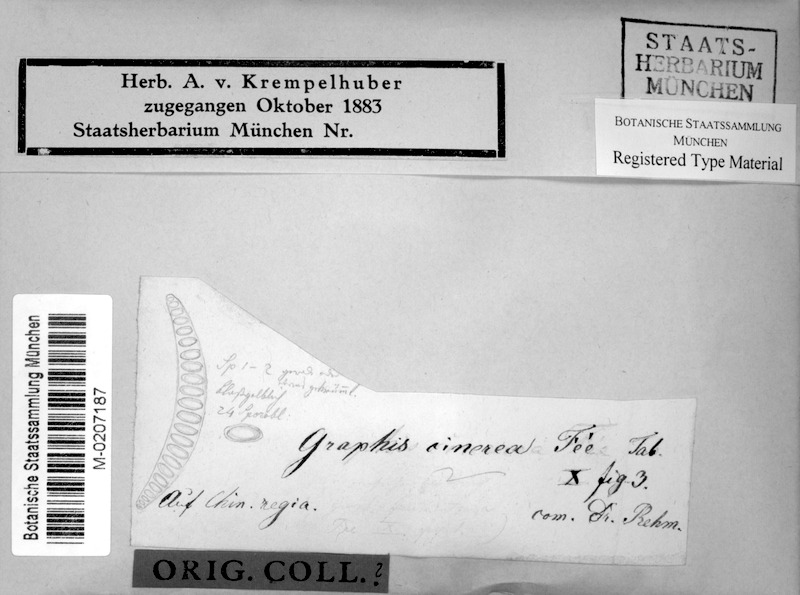 Herb. A. v. Krempelhuber
zugegangen Oktober 1883
Staatsherbarium München Nr.
STAATS-
HERBARIUM
MÜNCHEN
BOTANISCHE STAATSSAMMLUNG
MÜNCHEN
Registered Type Material
Botanische Staatssammlung München
M-0207187
Sp 1-2 gerade oder
gekrümmt.
24
Graphis cinerea Fée Tab.
X fig 3.
Auf Chin. regia.
com. Dr. Rehm.
ORIG. COLL.?